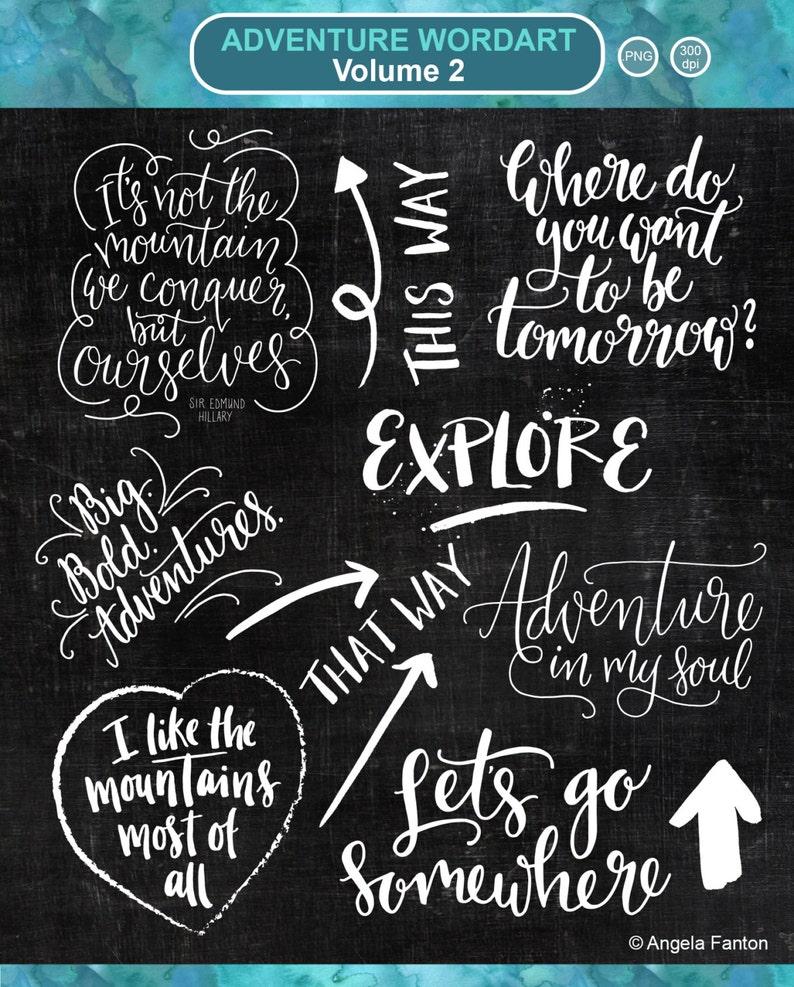 ADVENTURE WORDART
Volume 2
.PNG
300
dpi
It's not the
mountain
we conquer,
but
ourselves
SIR EDMUND
HILLARY
THIS WAY
Where do
you want
to be
tomorrow?
EXPLORE
Big.
Bold.
Adventures.
THAT WAY
Adventure
in my soul
I like the
mountains
most of
all
Let's go
somewhere
© Angela Fanton